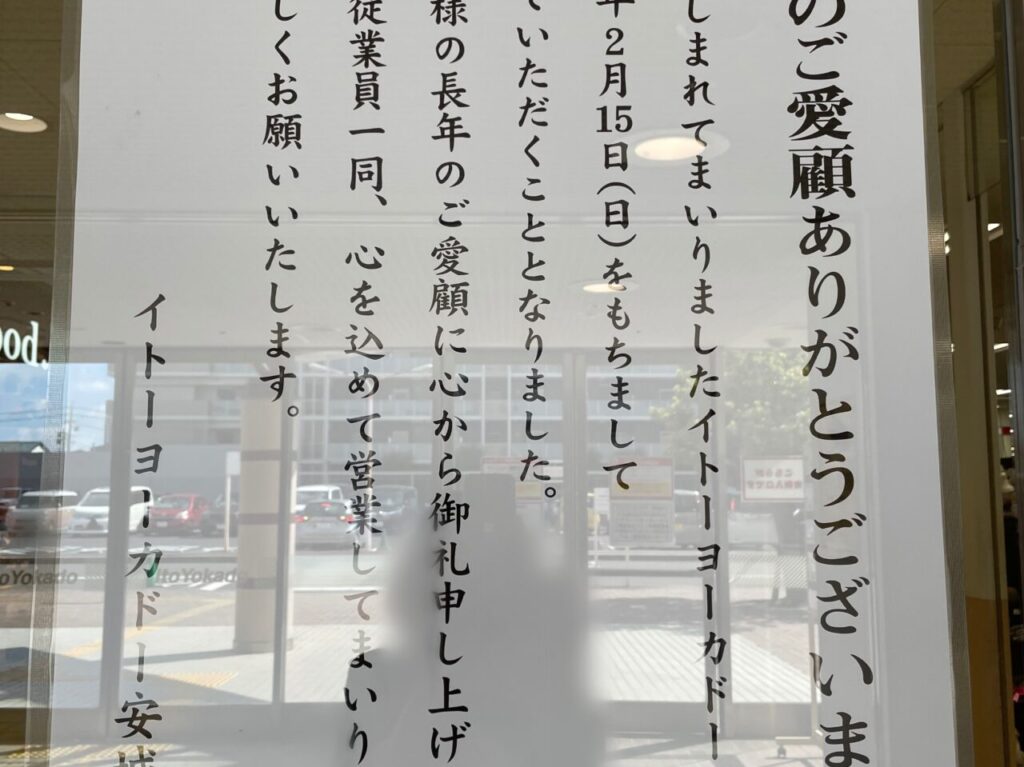 のご愛顧ありがとうございま
しまれてまいりましたイトーヨーカドー
年2月15日(日)をもちまして
ていただくこととなりました。
様の長年のご愛顧に心から御礼申し上げ
従業員一同、心を込めて営業してまいり
しくお願いいたします。
イトーヨーカドー安城
.boo
toYokado
ItoYokado